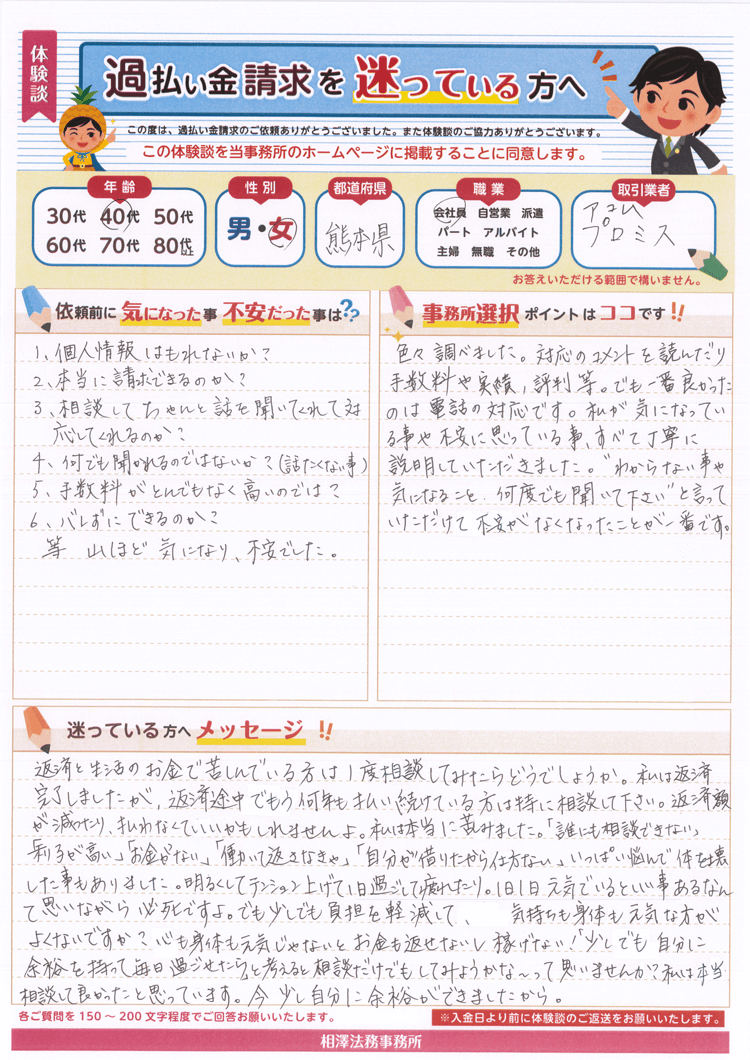 体験談
過払い金請求を 迷っている 方へ
この度は、過払い金請求のご依頼ありがとうございました。また体験談のご協力ありがとうございます。
この体験談を当事務所のホームページに掲載することに同意します。
年齢
30代 40代 50代
60代 70代 80代以上
性別
男・女
都道府県
熊本県
職業
会社員 自営業 派遣
パート アルバイト
主婦 無職 その他
取引業者
アコム
プロミス
お答えいただける範囲で構いません。
依頼前に 気になった事 不安だった事は??
1、個人情報はもれないか?
2、本当に請求できるのか?
3、相談してちゃんと話を聞いてくれて対
応してくれるのか?
4、何でも聞かれるのではないか?(話たくない事)
5、手数料がとんでもなく高いのでは?
6、バレずにできるのか?
等 山ほど 気になり、不安でした。
事務所選択 ポイントは ココです!!
色々調べました。対応のコメントを読んだり
手数料や実績,評判等。でも一番良かった
のは電話の対応です。私が気になってい
る事や不安に思っている事、すべて丁寧に
説明していただきました。"わからない事や
気になること、何度でも聞いて下さい"と言って
いただけて不安がなくなったことが一番です。
迷っている方へ メッセージ!!
返済と生活のお金で苦しんでいる方は1度相談してみたらどうでしょうか。私は返済
完了しましたが、返済途中でもう何年も払い続けている方は特に相談して下さい。返済額
が減ったり、払わなくていいかもしれませんよ。私は本当に苦みました。「誰にも相談できない」
「利子が高い」「お金がない」「働いて返さなきゃ」「自分が借りたから仕方ない」いっぱい悩んで体を壊
した事もありました。明るくしてテンション上げて1日過ごして疲れたり。1日1日元気でいるといい事あるなん
て思いながら必死ですよ。でも少しでも負担を軽減して、 気持ちも身体も元気な方が
よくないですか?心も身体も元気じゃないとお金も返せないし稼げない!「少しでも自分に
余裕を持って毎日過ごせたら」と考えると相談だけでもしてみようかな〜って思いませんか?私は本当
相談して良かったと思っています。今少し自分に余裕ができましたから。
各ご質問を150〜200文字程度でご回答お願いいたします。
※入金日より前に体験談のご返送をお願いいたします。
相澤法務事務所